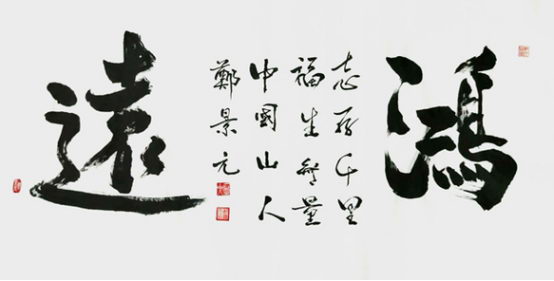 鴻
志千里
福生無量
中國山人
鄭景元
遠